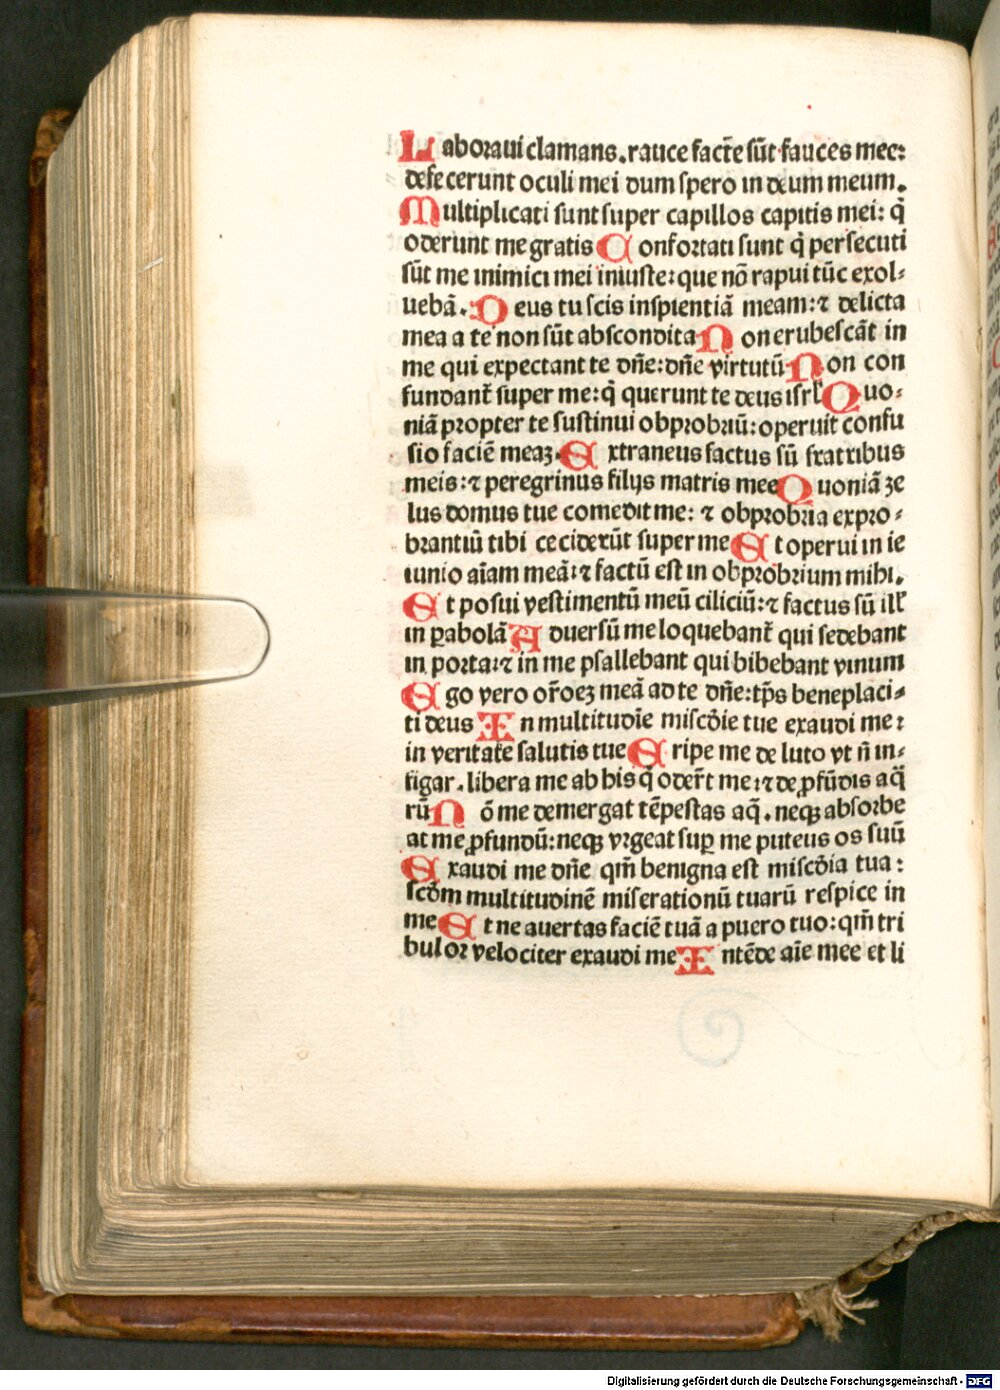 Laboraui clamans. rauce facte̅ su̅t fauces mee:
defecerunt oculi mei dum spero in deum meum.
Multiplicati sunt super capillos capitis mei: q̅
oderunt me gratis Confortati sunt q̅ persecuti
su̅t me inimici mei iniuste: que no̅ rapui tu̅c exol⸗
ueba̅. Deus tu scis inspientia̅ meam: ⁊ delicta
mea a te non su̅t abscondita Non erubesca̅t in
me qui expectant te dn̅e: dn̅e virtutu̅ Non con
fundant̅ super me: q̅ querunt te deus isrl̅ Quo⸗
nia̅ propter te sustinui obprobriu̅: operuit confu
sio facie̅ meaꝫ. Extraneus factus su̅ fratribus
meis: ⁊ peregrinus filijs matris mee Quonia̅ ze
lus domus tue comedit me: ⁊ obprobria expro⸗
brantiu̅ tibi cecideru̅t super me Et operui in ie
iunio ai̅am mea̅: ⁊ factu̅ est in obprobrium mihi.
Et posui vestimentu̅ meu̅ ciliciu̅: ⁊ factus su̅ ill̅
in ꝑabola̅ Aduersu̅ me loquebant̅ qui sedebant
in porta: ⁊ in me psallebant qui bibebant vinum
Ego vero or̅oeꝫ mea̅ ad te dn̅e: tp̅s beneplaci⸗
ti deus In multitudi̅e misc̅die tue exaudi me:
in veritate salutis tue Eripe me de luto vt n̅ in⸗
figar. libera me ab his q̅ oder̅t me: ⁊ de ꝓfu̅dis aq̅
ru̅ No̅ me demergat te̅pestas aq̅. neqꝫ absorbe
at me ꝓfundu̅: neqꝫ vrgeat suꝑ me puteus os suu̅
Exaudi me dn̅e qm̅ benigna est misc̅dia tua:
scd̅m multitudine̅ miserationu̅ tuaru̅ respice in
me Et ne auertas facie̅ tua̅ a puero tuo: qm̅ tri
bulor velociter exaudi me Inte̅de ai̅e mee et li
Digitalisierung gefördert durch die Deutsche Forschungsgemeinschaft - DFG